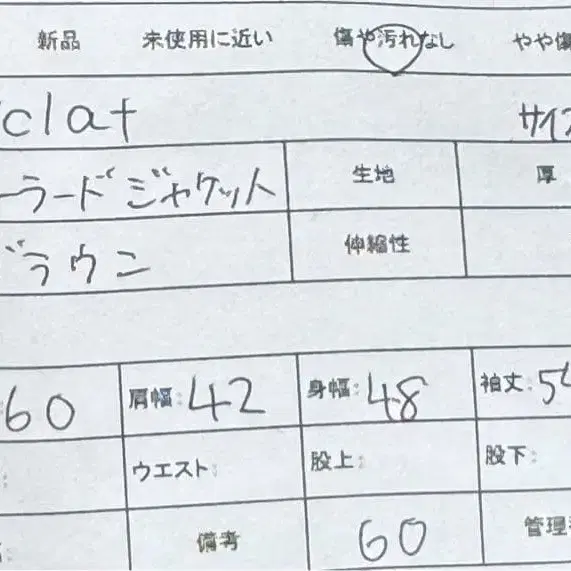 新品 未使用に近い 傷や汚れなし やや傷
clat サイズ
ーラードジャケット 生地 厚
ブラウン 伸縮性
60 肩幅: 42 身幅: 48 袖丈: 54
ウエスト: 股上: 股下:
備考 60 管理